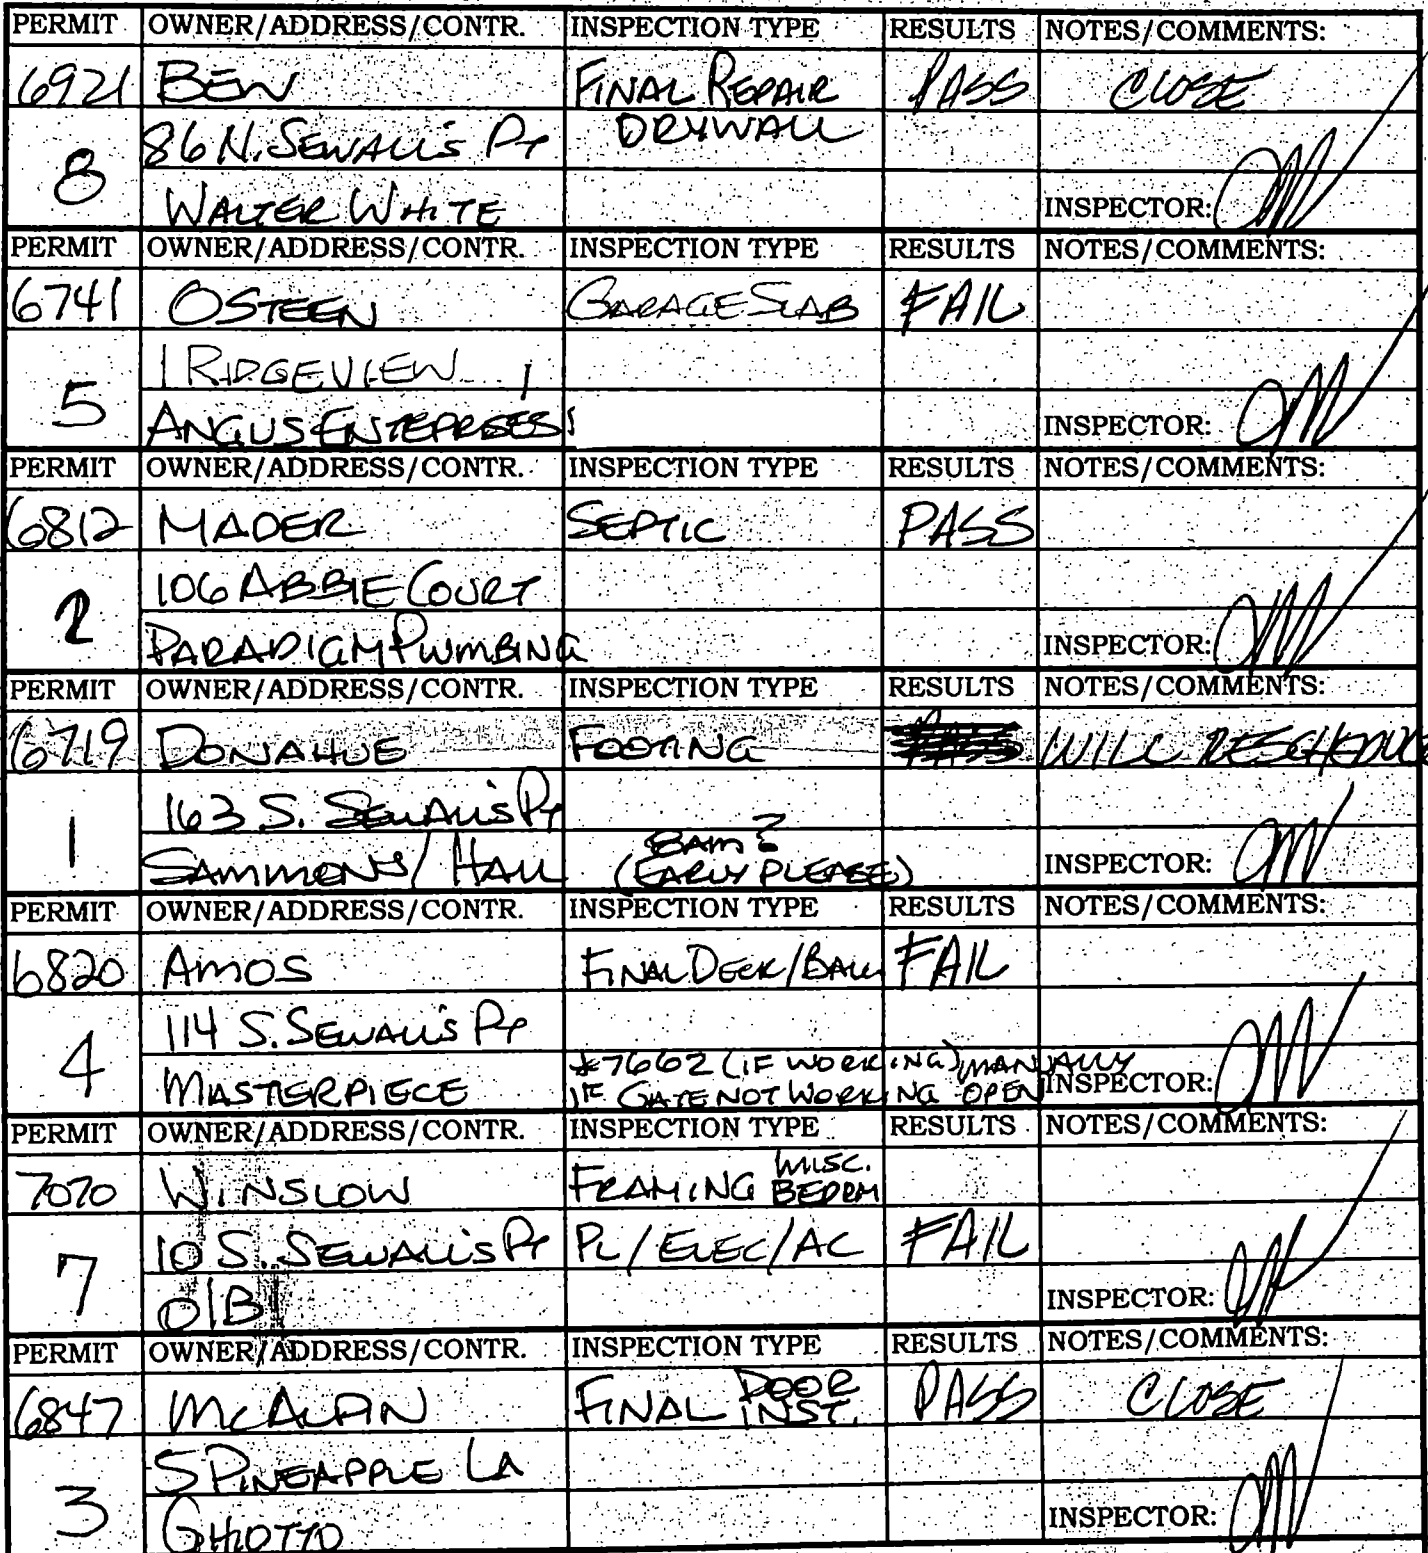 PERMIT OWNER/ADDRESS/CONTR. INSPECTION TYPE RESULTS NOTES/COMMENTS:
6921 BEW FINAL REPAIR PASS CLOSE
8 86 N. SEWALL'S PT DRYWALL
WALTER WHITE INSPECTOR:
PERMIT OWNER/ADDRESS/CONTR. INSPECTION TYPE RESULTS NOTES/COMMENTS:
6741 OSTEEN GARAGE SLAB FAIL
5 1 RIDGEVIEW
ANGUS ENTERPRISES INSPECTOR:
PERMIT OWNER/ADDRESS/CONTR. INSPECTION TYPE RESULTS NOTES/COMMENTS:
6812 MADER SEPTIC PASS
2 106 ABBIE COURT
PARADIGM PLUMBING INSPECTOR:
PERMIT OWNER/ADDRESS/CONTR. INSPECTION TYPE RESULTS NOTES/COMMENTS:
6719 DONAHUE FOOTING WILL RESCHEDULE
1 163 S. SEWALL'S PT
8AM?
SAMMONS/HALL (EARLY PLEASE) INSPECTOR:
PERMIT OWNER/ADDRESS/CONTR. INSPECTION TYPE RESULTS NOTES/COMMENTS:
6820 AMOS FINAL DECK/BALC FAIL
4 114 S. SEWALL'S PT
#7662 (IF WORKING) MANUALLY
MASTERPIECE IF GATE NOT WORKING OPEN INSPECTOR:
PERMIT OWNER/ADDRESS/CONTR. INSPECTION TYPE RESULTS NOTES/COMMENTS:
7070 WINSLOW FRAMING MISC. BEDRM
7 10 S. SEWALL'S PT PL/ELEC/AC FAIL
O/B INSPECTOR:
PERMIT OWNER/ADDRESS/CONTR. INSPECTION TYPE RESULTS NOTES/COMMENTS:
6847 MCALPIN FINAL DOOR INST. PASS CLOSE
3 5 PINEAPPLE LA
GHIOTTO INSPECTOR: